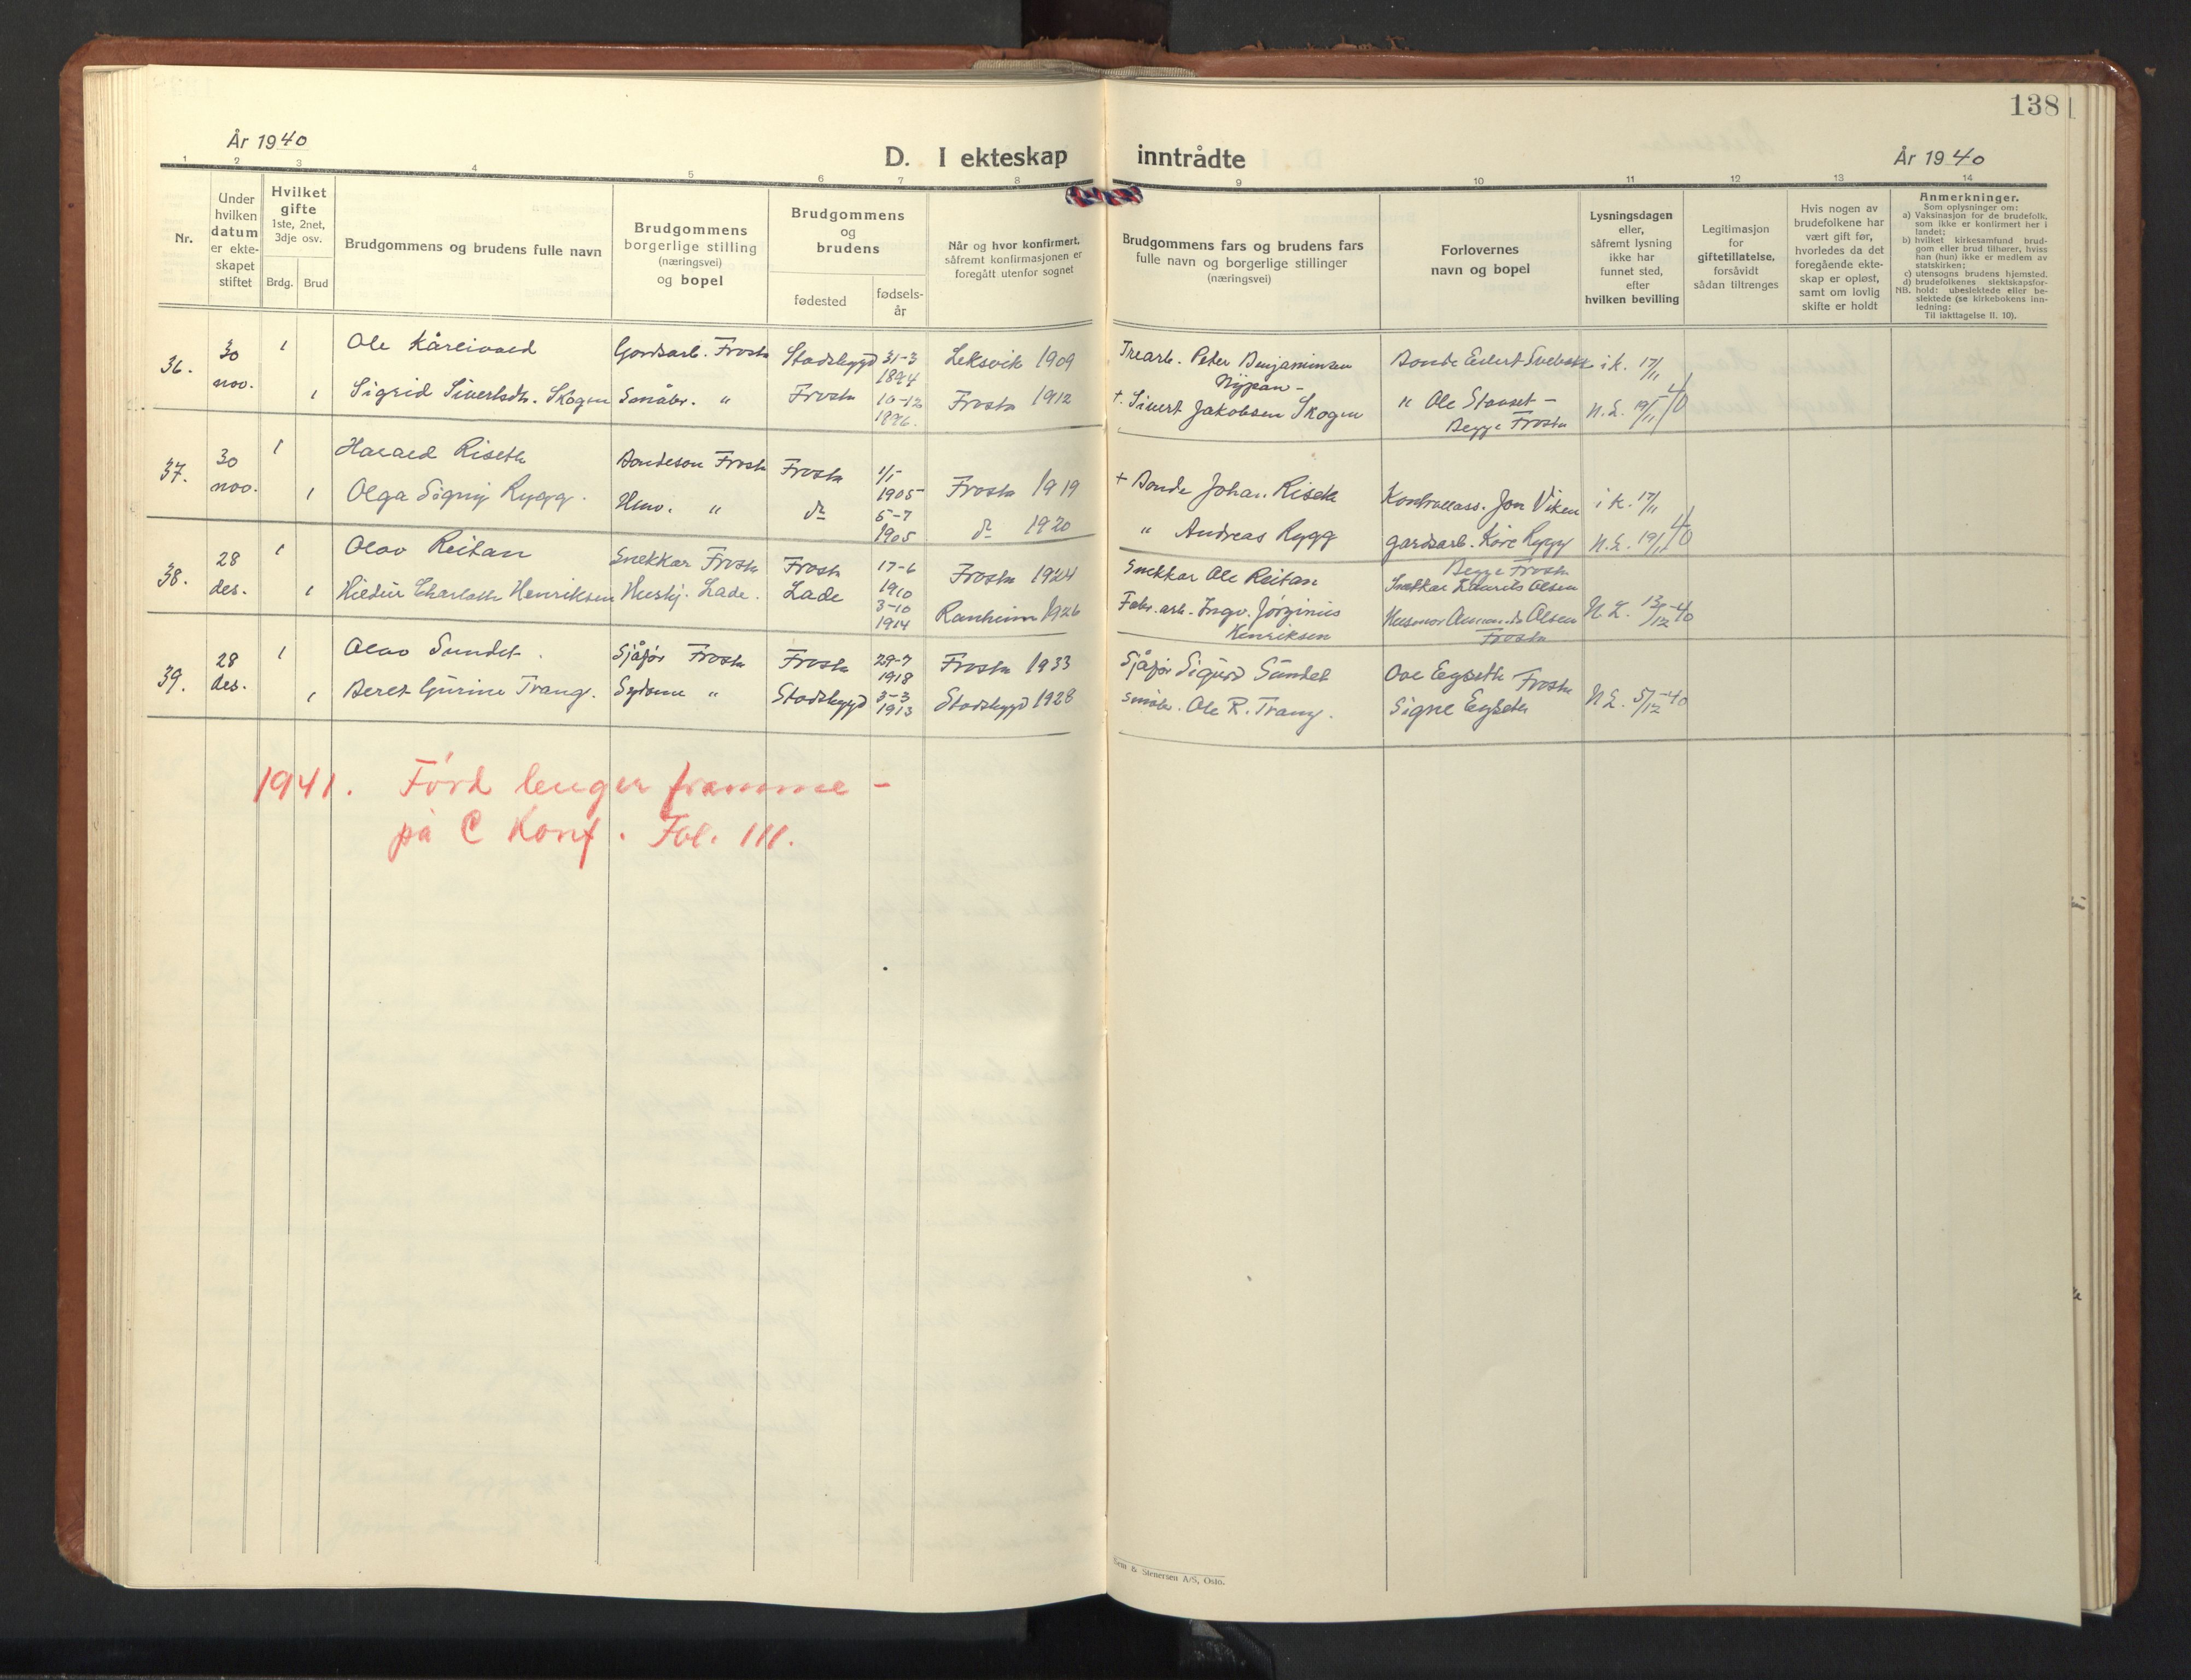 138
År 1940
D. I ekteskap inntrådte
År 1940
1 2 3 4 5 6 7 8 9 10 11 12 13 14
Nr.
Under
hvilken
datum
er ekte-
skapet
stiftet
Hvilket
gifte
1ste, 2net,
3dje osv.
Brdg. Brud
Brudgommens og brudens fulle navn
Brudgommens
borgerlige stilling
(næringsvei)
og bopel
Brudgommens
og
brudens
fødested
fødsels-
år
Når og hvor konfirmert,
såfremt konfirmasjonen er
foregått utenfor sognet
Brudgommens fars og brudens fars
fulle navn og borgerlige stillinger
(næringsvei)
Forlovernes
navn og bopel
Lysningsdagen
eller,
såfremt lysning
ikke har
funnet sted,
efter
hvilken bevilling
Legitimasjon
for
giftetillatelse,
forsåvidt
sådan tiltrenges
Hvis nogen av
brudefolkene har
vært gift før,
hvorledes da det
foregående ekte-
skap er opløst,
samt om lovlig
skifte er holdt
Anmerkninger.
Som oplysninger om:
a) Vaksinasjon for de brudefolk,
som ikke er konfirmert her i
landet;
b) hvilket kirkesamfund brud-
gom eller brud tilhører, hviss
han (hun) ikke er medlem av
statskirken;
c) utensogns brudens hjemsted.
d) brudefolkenes slektskapsfor-
NB. hold: ubeslektede eller be-
slektede (se kirkebokens inn-
ledning:
Til iakttagelse II. 10).
36. 30 nov. 1 Ole Kåreivaed Gardsarb. Frosta Stadsbygd 31-3 1894 Leksvik 1909 Trearb. Peter Benjaminsen Nypan - Bonde Eilert i k. 17/11
1 Sigrid Sivertsdtr. Skogen Småbr. " Frosta 10-12 1896. Frosta 1912 +. Sivert Jakobsen Skogen " Ole Stavset - Begge Frosta N.L. 19/11 -40
37. 30 nov. 1 Harald Riseth Bondeson Frosta Frosta 1/1 1905 Frosta 1919 + Bonde Johan Riseth Kontrollass. Jon Viken i k. 17/11
1 Olga Signy Rygg. " do 5-7 1905 do 1920 " Andreas Rygg gardsarb. Kåre Rygg Begge Frosta N.L. 19/11 40
38. 28 des. 1 Olav Reitan Snekkar Frosta Frosta 17-6 1910 Frosta 1924 Snekkar Ole Reitan Snekkar Laurits Olsen
1 Hildur Charlotte Henriksen Hushj. Lade. Lade 3-10 1914 Ranheim 1926 Fabr. arb. Ingv. Jørginius Henriksen Husmor Olsen Frosta N.L. 13/12 -40
39. 28 des. 1 Olav Sundet. Sjåfør Frosta Frosta 29-7 1918 Frosta 1933 Sjåfør Sigurd Sundet Ove Eggseth Frosta
1 Beret Gurine Trang. Sydame " Stadsbygd 3-3 1913 Stadsbygd 1928 Småbr. Ole R. Trang. Signe N.L. 5/12 -40
1941. Förd lenger framme -
på C Konf. Fol. 111.
& Stenersen A/S, Oslo.